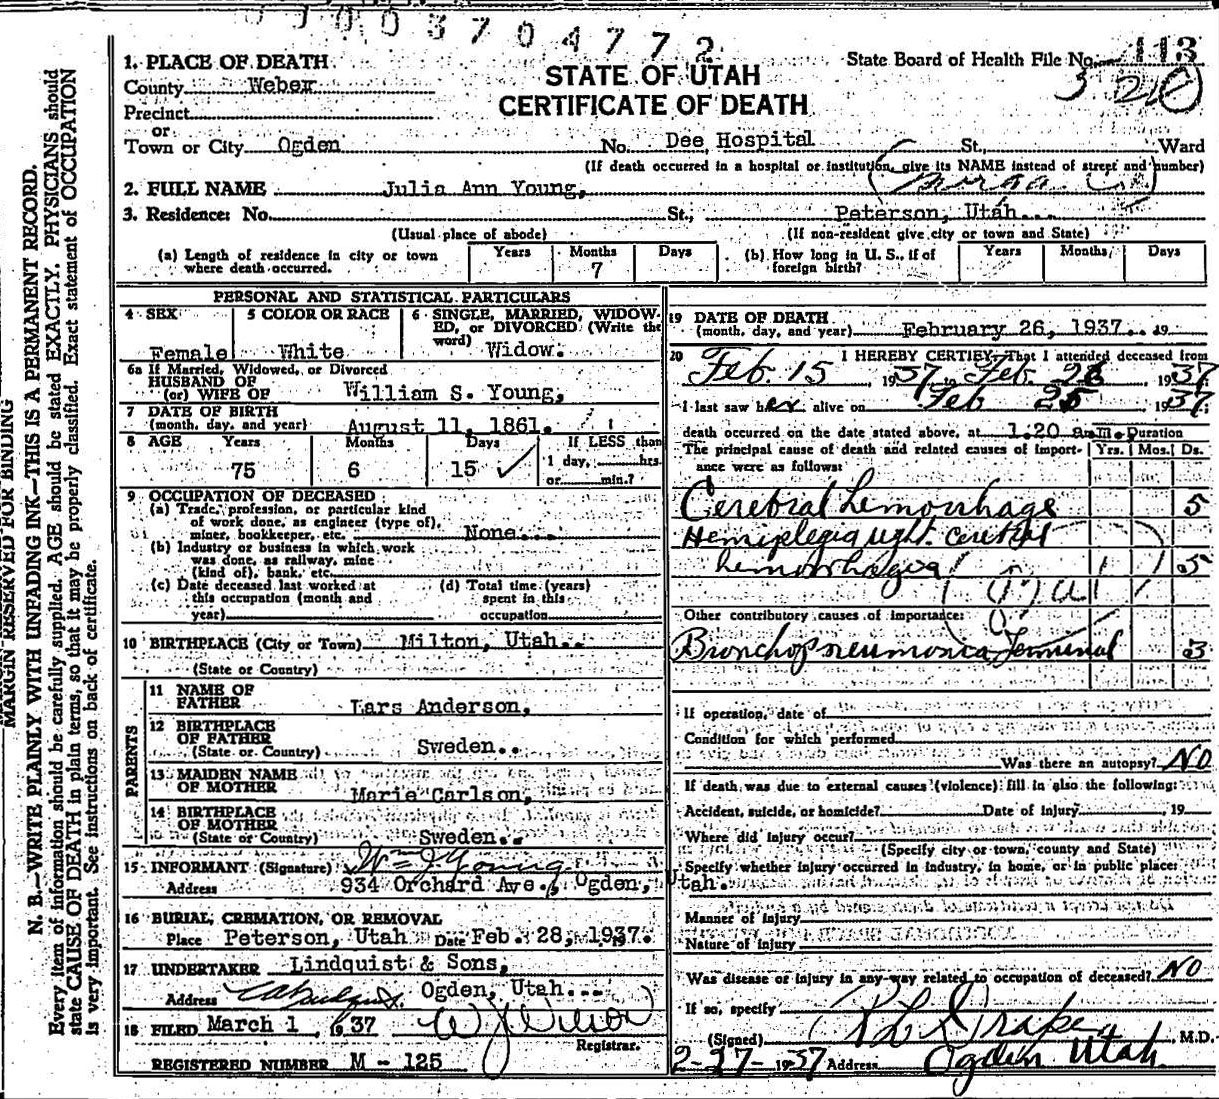 0 0 0 3 7 0 4 7 7 2
State Board of Health File No. 113
320
1. PLACE OF DEATH
STATE OF UTAH
County Weber
CERTIFICATE OF DEATH
Precinct
or
Town or City Ogden No. Dee Hospital St., Ward
(If death occurred in a hospital or institution, give its NAME instead of street and number)
2. FULL NAME Julia Ann Young,
3. Residence: No. St., Peterson, Utah...
(Usual place of abode) (If non-resident give city or town and State)
(a) Length of residence in city or town where death occurred. Years Months 7 Days
(b) How long in U. S., if of foreign birth? Years Months Days
PERSONAL AND STATISTICAL PARTICULARS
4 SEX Female
5 COLOR OR RACE White
6 SINGLE, MARRIED, WIDOWED, or DIVORCED (Write the word) Widow.
6a If Married, Widowed, or Divorced
HUSBAND OF
(or) WIFE OF William S. Young,
7 DATE OF BIRTH
(month, day, and year) August 11, 1861.
8 AGE Years Months Days If LESS than
75 6 15 ✓ 1 day, hrs.
or min.?
9 OCCUPATION OF DECEASED
(a) Trade, profession, or particular kind
of work done, as engineer (type of),
miner, bookkeeper, etc. None...
(b) Industry or business in which work
was done, as railway, mine
(kind of), bank, etc.
(c) Date deceased last worked at
this occupation (month and
year)
(d) Total time (years)
spent in this
occupation
10 BIRTHPLACE (City or Town) Milton, Utah..
(State or Country)
PARENTS
11 NAME OF
FATHER Lars Anderson,
12 BIRTHPLACE
OF FATHER Sweden..
(State or Country)
13 MAIDEN NAME
OF MOTHER Marie Carlson,
14 BIRTHPLACE
OF MOTHER
(State or Country) Sweden..
15 INFORMANT (Signature) Wm J Young
Address 934 Orchard Ave., Ogden, Utah.
16 BURIAL, CREMATION, OR REMOVAL
Place Peterson, Utah Date Feb. 28, 1937.
17 UNDERTAKER Lindquist & Sons,
Address Ogden, Utah...
18 FILED March 1, 1937 W J Wilson
Registrar.
REGISTERED NUMBER M - 125
19 DATE OF DEATH
(month, day, and year) February 26, 1937.. 19
20 I HEREBY CERTIFY, That I attended deceased from
Feb. 15, 1937 to Feb. 26, 1937
I last saw her alive on Feb 25, 1937
death occurred on the date stated above, at 1.20 a.m. Duration
The principal cause of death and related causes of importance were as follows: Yrs. Mos. Ds.
Cerebral hemorrhage 5
Hemiplegia right. cerebral
hemorrhage 5
Other contributory causes of importance:
Bronchopneumonia Terminal 3
If operation, date of
Condition for which performed
Was there an autopsy? NO
If death was due to external causes (violence) fill in also the following:
Accident, suicide, or homicide? Date of injury 19
Where did injury occur?
(Specify city or town, county and State)
Specify whether injury occurred in industry, in home, or in public place:
Manner of injury
Nature of injury
Was disease or injury in any way related to occupation of deceased? NO
If so, specify
(Signed) R L Draper, M.D.
2-27-1937 Address Ogden Utah
MARGIN RESERVED FOR BINDING
N. B.—WRITE PLAINLY WITH UNFADING INK—THIS IS A PERMANENT RECORD.
Every item of information should be carefully supplied. AGE should be stated EXACTLY. PHYSICIANS should
state CAUSE OF DEATH in plain terms, so that it may be properly classified. Exact statement of OCCUPATION
is very important. See instructions on back of certificate.